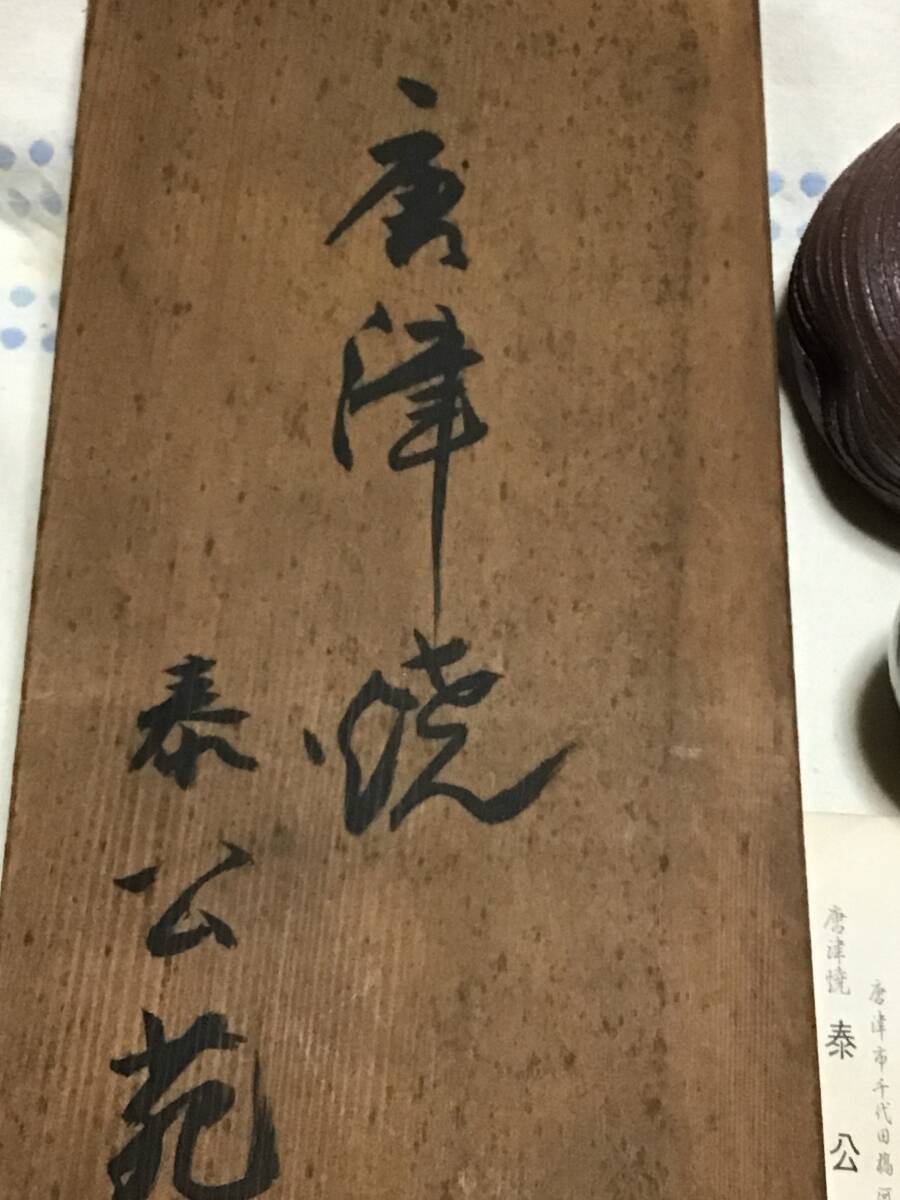 唐津焼
泰公苑
唐津市千代田橋河
唐津焼 泰公